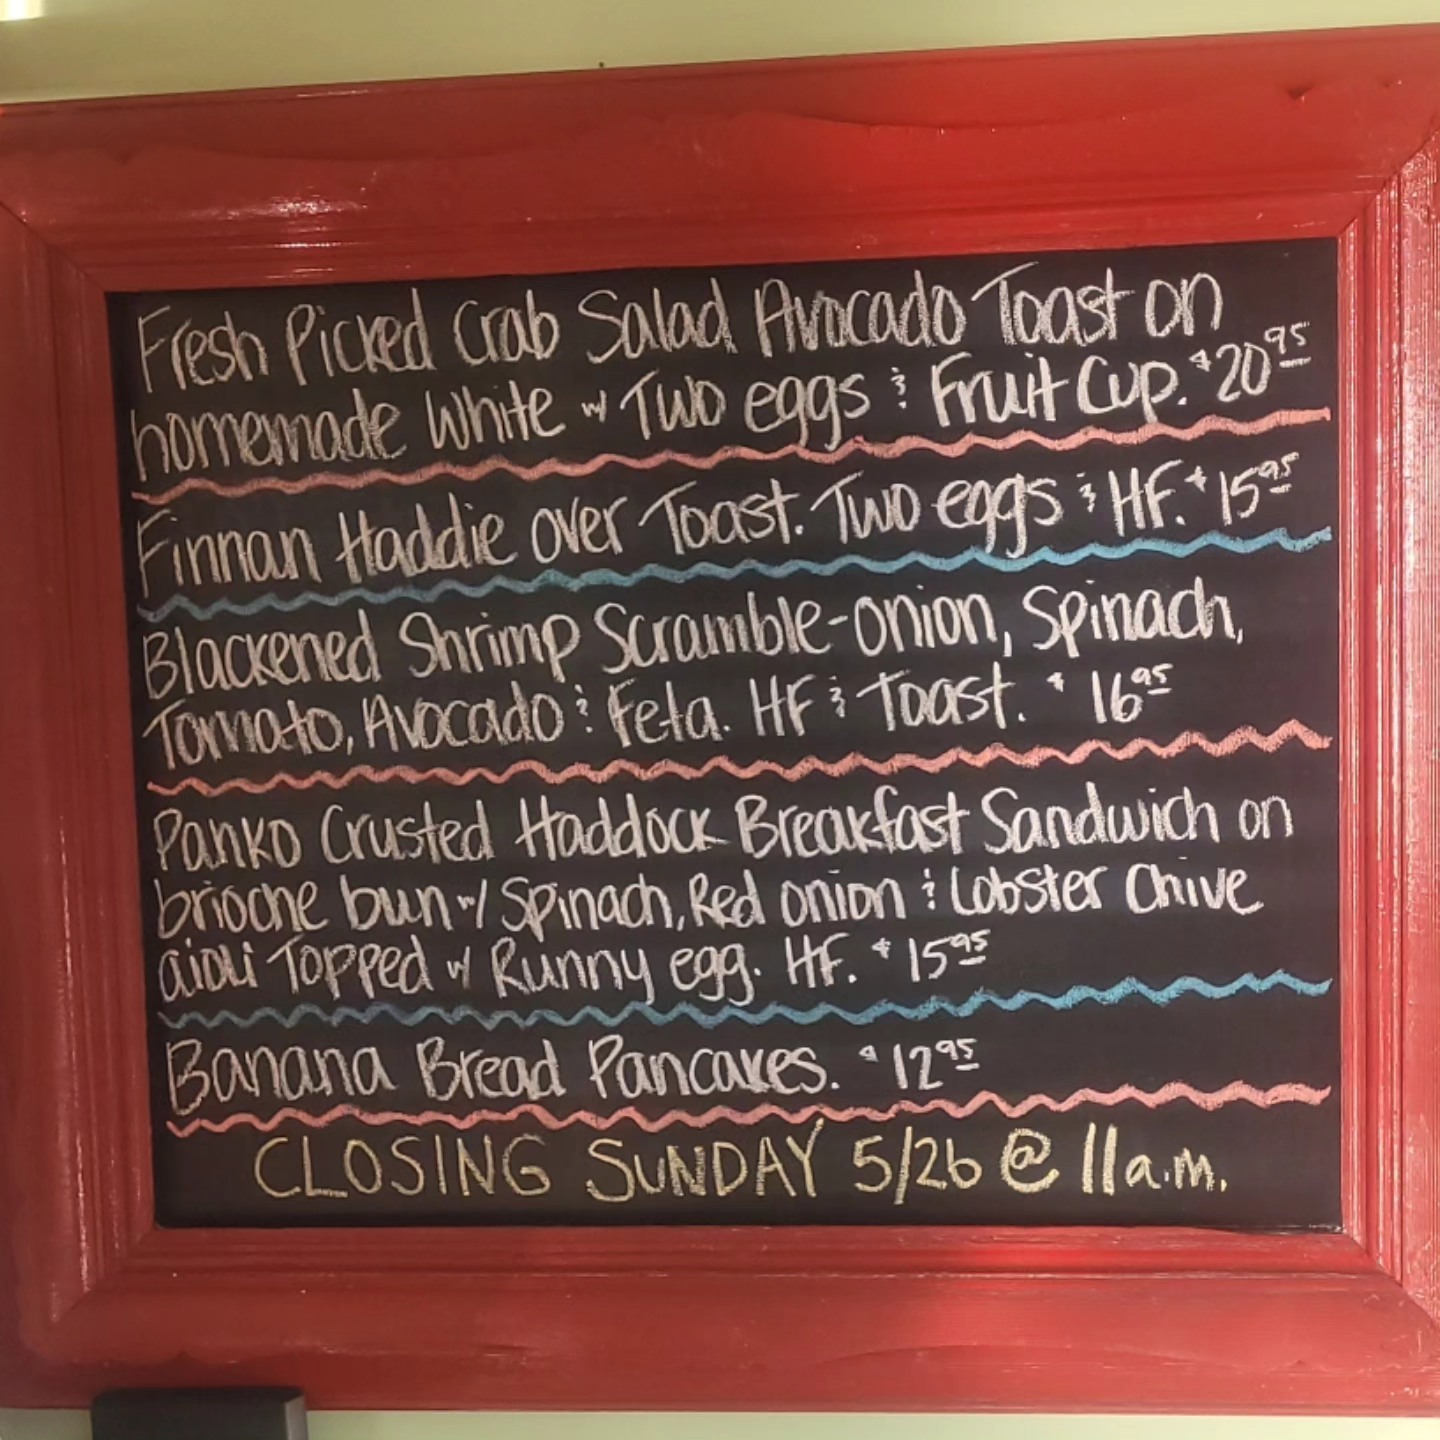 Fresh Picked Crab Salad Avocado Toast on
homemade White w/ Two eggs & Fruit Cup. $20.95
Finnan Haddie over Toast. Two eggs & HF. $15.95
Blackened Shrimp Scramble-onion, Spinach,
Tomato, Avocado & Feta. HF & Toast. $16.95
Panko Crusted Haddock Breakfast Sandwich on
brioche bun w/ Spinach, Red onion & Lobster Chive
aioli Topped w/ Runny egg. HF. $15.95
Banana Bread Pancakes. $12.95
CLOSING SUNDAY 5/26 @ 11a.m.